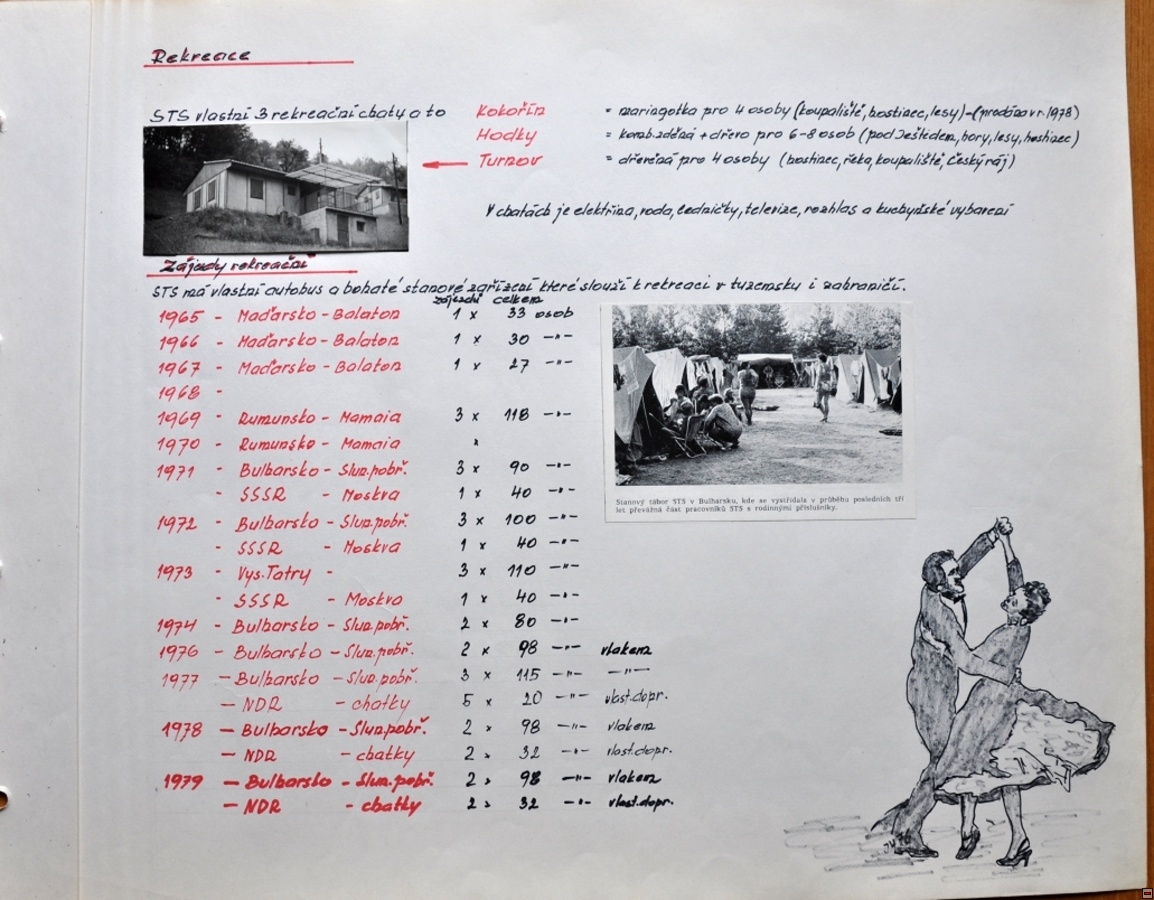 Rekreace
STS vlastní 3 rekreační chaty a to
Kokořín = maringotka pro 4 osoby (koupaliště, hostinec, lesy) - (prodána v r. 1978)
Hodky = komb. zděná + dřevo pro 6-8 osob (pod Ještědem, hory, lesy, hostinec)
Turnov = dřevěná pro 4 osoby (hostinec, řeka, koupaliště, Český ráj)
V chatách je elektřina, voda, ledničky, televize, rozhlas a kuchyňské vybavení
Zájezdy rekreační
STS má vlastní autobus a bohaté stanové zařízení které slouží k rekreaci v tuzemsku i zahraničí.
zájezdů celkem
1965 - Maďarsko - Balaton 1 x 33 osob
1966 - Maďarsko - Balaton 1 x 30 -"-
1967 - Maďarsko - Balaton 1 x 27 -"-
1968 -
1969 - Rumunsko - Mamaia 3 x 118 -"-
1970 - Rumunsko - Mamaia x
1971 - Bulharsko - Slun.pobř. 3 x 90 -"-
- SSSR - Moskva 1 x 40 -"-
1972 - Bulharsko - Slun.pobř. 3 x 100 -"-
- SSSR - Moskva 1 x 40 -"-
1973 - Vys. Tatry - 3 x 110 -"-
- SSSR - Moskva 1 x 40 -"-
1974 - Bulharsko - Slun.pobř. 2 x 80 -"-
1976 - Bulharsko - Slun.pobř. 2 x 98 -"- vlakem
1977 - Bulharsko - Slun.pobř. 3 x 115 -"- -"-
- NDR - chatky 5 x 20 -"- vlast.dopr.
1978 - Bulharsko - Slun.pobř. 2 x 98 -"- vlakem
- NDR - chatky 2 x 32 -"- vlast.dopr.
1979 - Bulharsko - Slun.pobř. 2 x 98 -"- vlakem
- NDR - chatky 2 x 32 -"- vlast.dopr.
Stanový tábor STS v Bulharsku, kde se vystřídala v průběhu posledních tří
let převážná část pracovníků STS s rodinnými příslušníky.